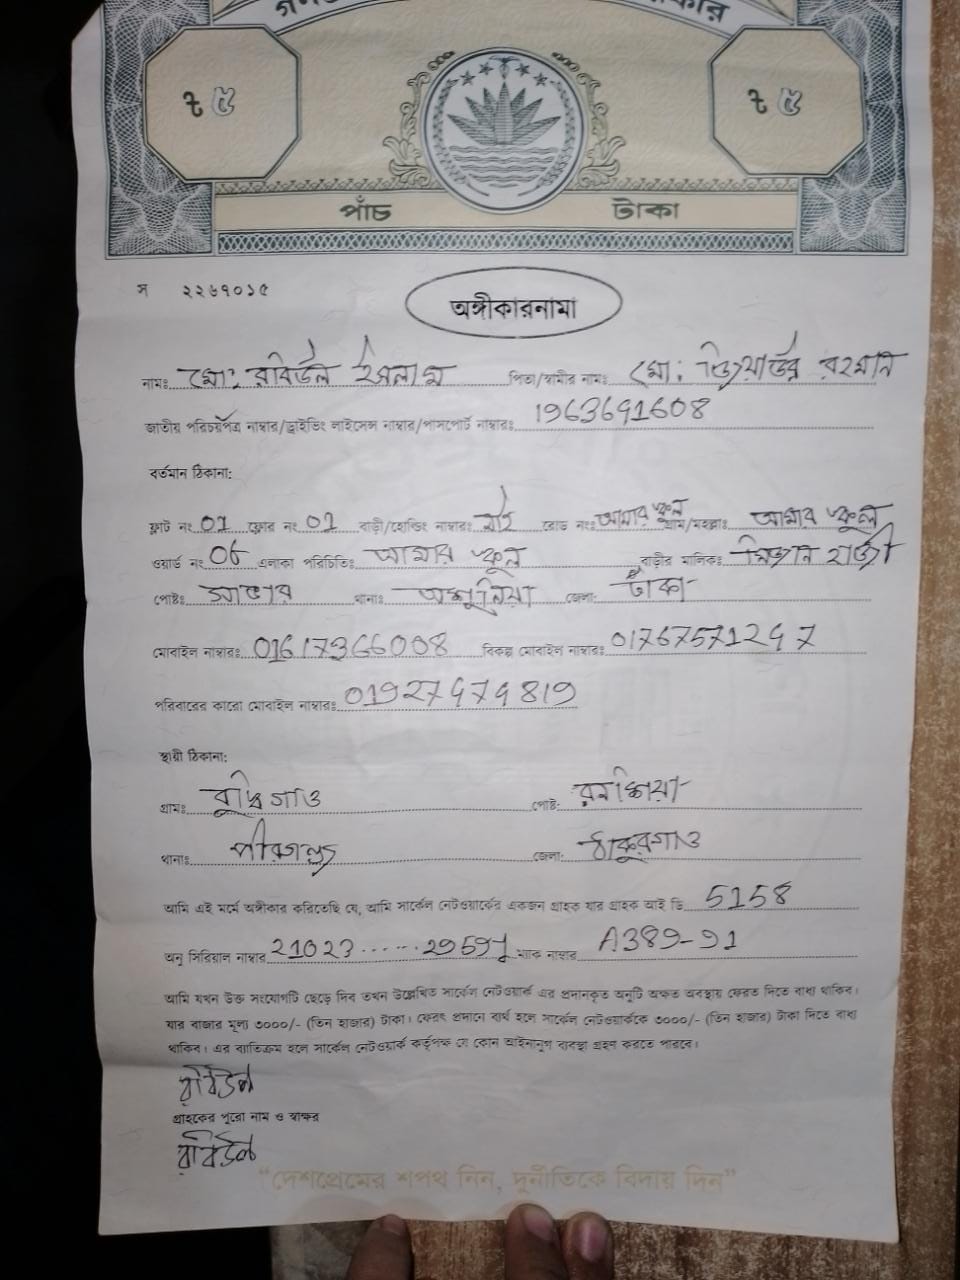 ৳ ৫ ৳ ৫
পাঁচ টাকা
স ২২৬৭০১৫
অঙ্গীকারনামা
নামঃ মো: রবিউল ইসলাম পিতা/স্বামীর নামঃ মো: জিয়াউর রহমান
জাতীয় পরিচয়পত্র নাম্বার/ড্রাইভিং লাইসেন্স নাম্বার/পাসপোর্ট নাম্বারঃ 1963691608
বর্তমান ঠিকানা:
ফ্লাট নং 01 ফ্লোর নং 01 বাড়ী/হোল্ডিং নাম্বারঃ নাই রোড নংঃ আমার স্কুল গ্রাম/মহল্লাঃ আমার স্কুল
ওয়ার্ড নং 06 এলাকা পরিচিতিঃ আমার স্কুল বাড়ীর মালিকঃ মিজান হাজী
পোষ্টঃ সাভার থানাঃ আশুলিয়া জেলা: ঢাকা
মোবাইল নাম্বারঃ 01617366008 বিকল্প মোবাইল নাম্বারঃ 01767571297
পরিবারের কারো মোবাইল নাম্বারঃ 01927979819
স্থায়ী ঠিকানা:
গ্রামঃ বৃদ্ধিগাও পোষ্ট:
থানাঃ পীরগঞ্জ জেলা: ঠাকুরগাও
আমি এই মর্মে অঙ্গীকার করিতেছি যে, আমি সার্কেল নেটওয়ার্কের একজন গ্রাহক যার গ্রাহক আই ডি 5158
অনু সিরিয়াল নাম্বার 21023......2959 ম্যাক নাম্বার A389-91
আমি যখন উক্ত সংযোগটি ছেড়ে দিব তখন উল্লেখিত সার্কেল নেটওয়ার্ক এর প্রদানকৃত অনুটি অক্ষত অবস্থায় ফেরত দিতে বাধ্য থাকিব।
যার বাজার মূল্য ৩০০০/- (তিন হাজার) টাকা। ফেরৎ প্রদানে ব্যর্থ হলে সার্কেল নেটওয়ার্ককে ৩০০০/- (তিন হাজার) টাকা দিতে বাধ্য
থাকিব। এর ব্যতিক্রম হলে সার্কেল নেটওয়ার্ক কর্তৃপক্ষ যে কোন আইনানুগ ব্যবস্থা গ্রহণ করতে পারবে।
রবিউল
গ্রাহকের পুরো নাম ও স্বাক্ষর
রবিউল
“দেশপ্রেমের শপথ নিন, দুর্নীতিকে বিদায় দিন”